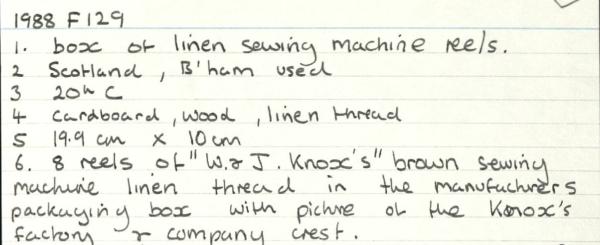 1988 F129
1. box of linen sewing machine reels.
2 Scotland, B'ham used
3 20th C
4 Cardboard, wood, linen thread
5 19.9 cm x 10 cm
6. 8 reels of "W. & J. Knox's" brown sewing
machine linen thread in the manufacturers
packaging box with picture of the Knox's
factory & company crest.